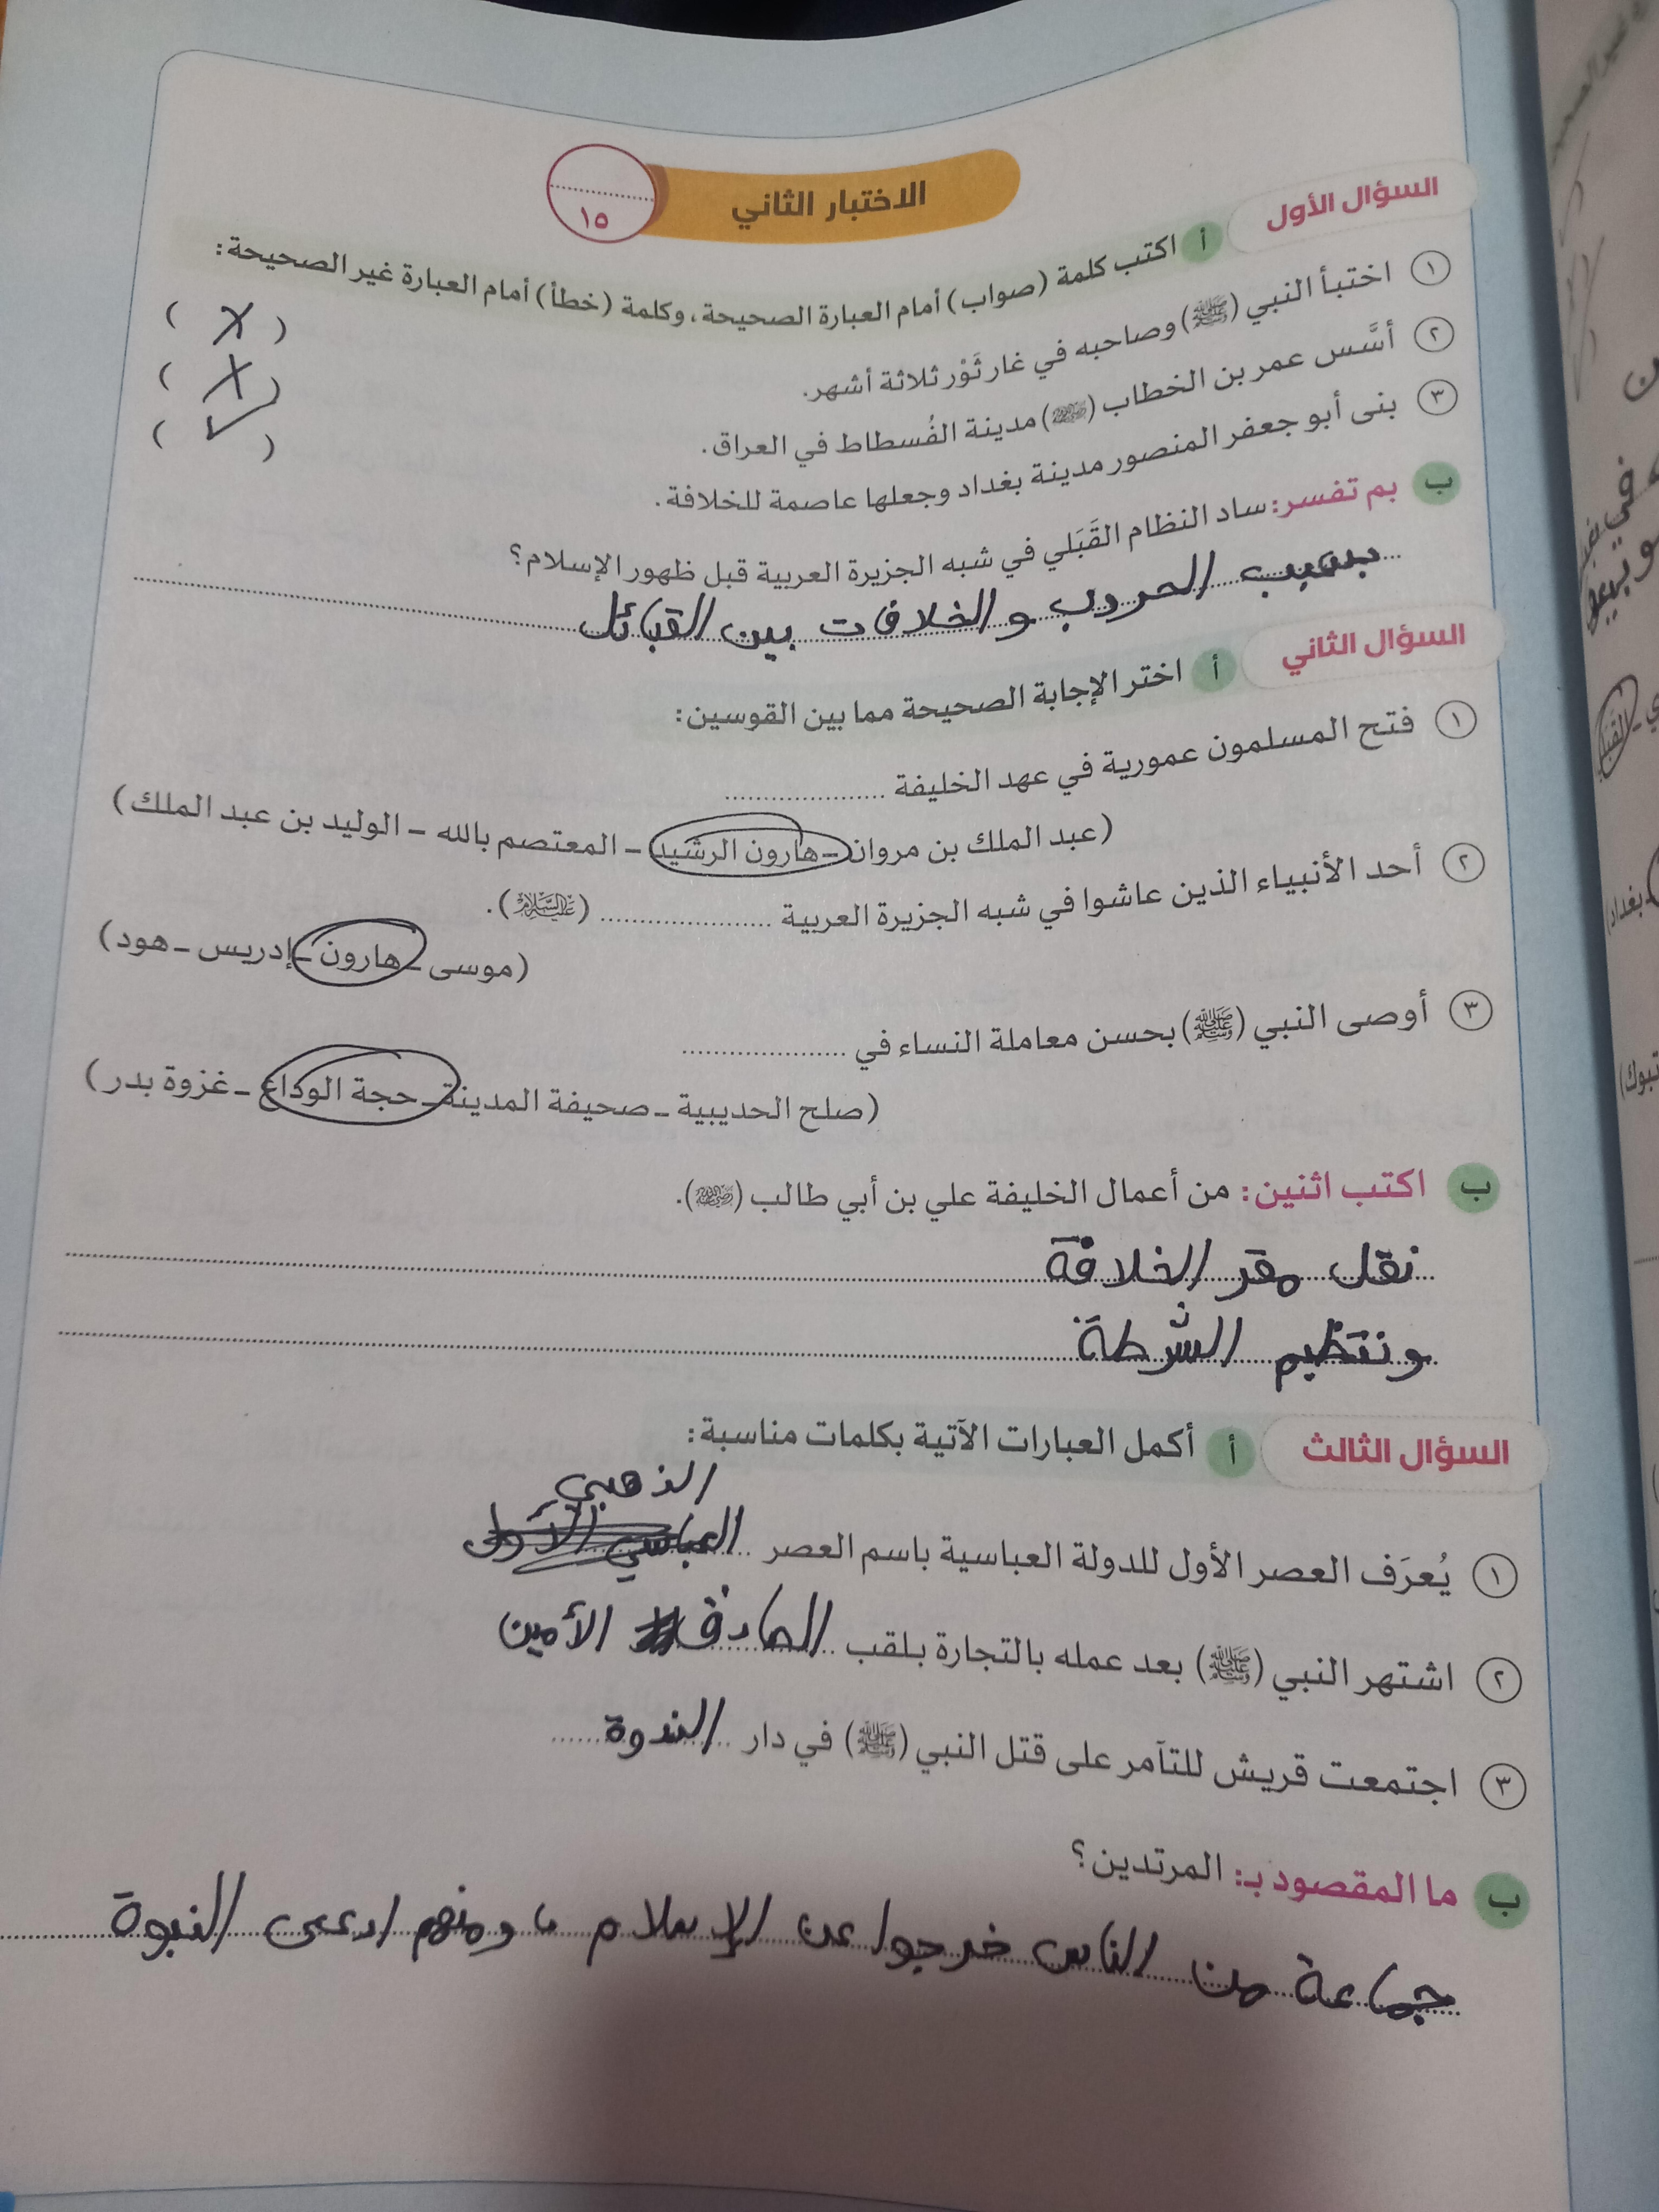 الاختبار الثاني
١٥
السؤال الأول
أ اكتب كلمة (صواب) أمام العبارة الصحيحة، وكلمة (خطأ) أمام العبارة غير الصحيحة:
١ اختبأ النبي (ﷺ) وصاحبه في غار ثَوْر ثلاثة أشهر. ( X )
٢ أسَّس عمر بن الخطاب (رضي الله عنه) مدينة الفُسطاط في العراق. ( X )
٣ بنى أبو جعفر المنصور مدينة بغداد وجعلها عاصمة للخلافة. ( ✓ )
ب بم تفسر: ساد النظام القَبَلي في شبه الجزيرة العربية قبل ظهور الإسلام؟
بسبب الحروب والخلافات بين القبائل
السؤال الثاني
أ اختر الإجابة الصحيحة مما بين القوسين:
١ فتح المسلمون عمورية في عهد الخليفة ....................
(عبد الملك بن مروان – هارون الرشيد – المعتصم بالله – الوليد بن عبد الملك)
٢ أحد الأنبياء الذين عاشوا في شبه الجزيرة العربية .................... (عليه السلام).
(موسى – هارون – إدريس – هود)
٣ أوصى النبي (ﷺ) بحسن معاملة النساء في ....................
(صلح الحديبية – صحيفة المدينة – حجة الوداع – غزوة بدر)
ب اكتب اثنين: من أعمال الخليفة علي بن أبي طالب (رضي الله عنه).
نقل مقر الخلافة
وتنظيم الشرطة
السؤال الثالث
أ أكمل العبارات الآتية بكلمات مناسبة:
الذهبي
١ يُعرَف العصر الأول للدولة العباسية باسم العصر العباسي الأول
٢ اشتهر النبي (ﷺ) بعد عمله بالتجارة بلقب الصادق الأمين
٣ اجتمعت قريش للتآمر على قتل النبي (ﷺ) في دار الندوة
ب ما المقصود بـ: المرتدين؟
جماعة من الناس خرجوا عن الإسلام، ومنهم ادعى النبوة
بغداد)
تبوك)